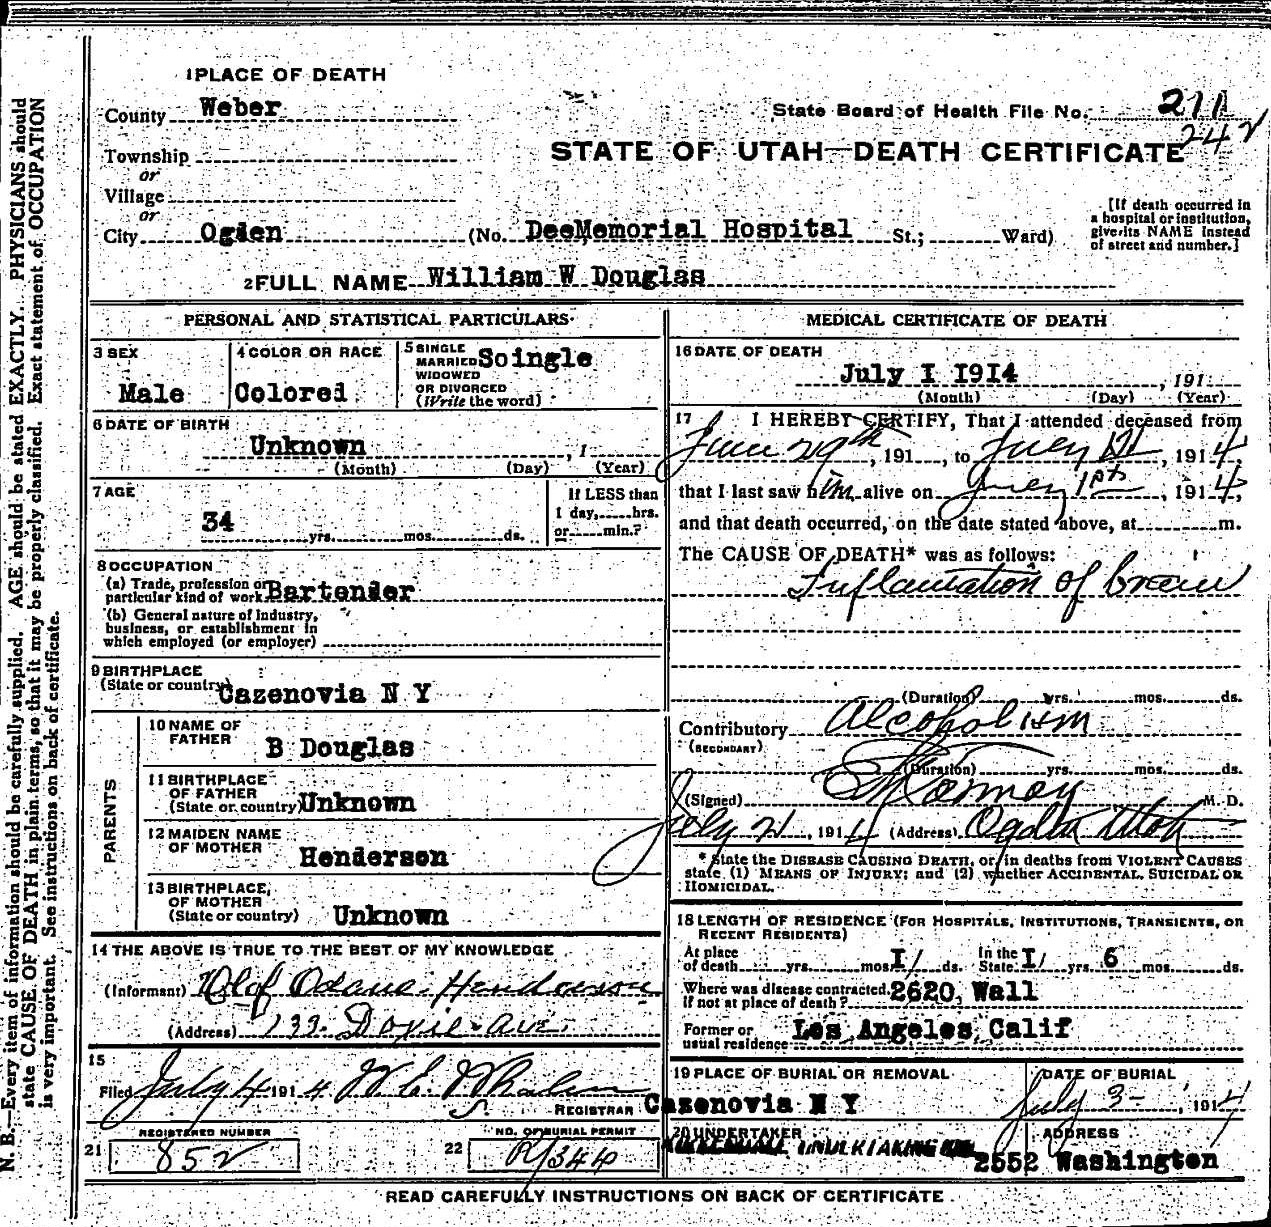 1 PLACE OF DEATH
County Weber
State Board of Health File No. 211
242
Township
or
STATE OF UTAH—DEATH CERTIFICATE
Village
or
City Ogden (No. DeeMemorial Hospital St.; Ward)
[If death occurred in
a hospital or institution,
give its NAME instead
of street and number.]
2 FULL NAME William W Douglas
PERSONAL AND STATISTICAL PARTICULARS
3 SEX
Male
4 COLOR OR RACE
Colored
5 SINGLE
MARRIED
WIDOWED
OR DIVORCED
(Write the word)
Soingle
6 DATE OF BIRTH
Unknown , 1
(Month) (Day) (Year)
7 AGE
34 yrs. mos. ds.
If LESS than
1 day, hrs.
or min.?
8 OCCUPATION
(a) Trade, profession or
particular kind of work Bartender
(b) General nature of industry,
business, or establishment in
which employed (or employer)
9 BIRTHPLACE
(State or country) Cazenovia N Y
PARENTS
10 NAME OF
FATHER
B Douglas
11 BIRTHPLACE
OF FATHER
(State or country) Unknown
12 MAIDEN NAME
OF MOTHER
Henderson
13 BIRTHPLACE
OF MOTHER
(State or country) Unknown
14 THE ABOVE IS TRUE TO THE BEST OF MY KNOWLEDGE
(Informant) Henderson
(Address) Ave.
15
Filed July 4 1914 W E Whalen
REGISTRAR
21 REGISTERED NUMBER
852
22 NO. OF BURIAL PERMIT
R/344
MEDICAL CERTIFICATE OF DEATH
16 DATE OF DEATH
July I I9I4 , 191
(Month) (Day) (Year)
17 I HEREBY CERTIFY, That I attended deceased from
June 29th , 191 , to July 1st , 1914,
that I last saw him alive on July 1st , 1914,
and that death occurred, on the date stated above, at m.
The CAUSE OF DEATH* was as follows:
Inflamation of brain
(Duration) yrs. mos. ds.
Contributory Alcoholism
(SECONDARY)
(Duration) yrs. mos. ds.
(Signed) M. D.
July 21, 1914 (Address) Ogden Utah
* State the DISEASE CAUSING DEATH, or, in deaths from VIOLENT CAUSES
state (1) MEANS OF INJURY; and (2) whether ACCIDENTAL, SUICIDAL OR
HOMICIDAL.
18 LENGTH OF RESIDENCE (FOR HOSPITALS, INSTITUTIONS, TRANSIENTS, OR
RECENT RESIDENTS)
At place
of death yrs. mos. I ds.
In the
State I yrs. 6 mos. ds.
Where was disease contracted,
if not at place of death? 2620 Wall
Former or
usual residence Los Angeles Calif
19 PLACE OF BURIAL OR REMOVAL
Cazenovia N Y
DATE OF BURIAL
July 3- , 1914
20 UNDERTAKER
ADDRESS
2552 Washington
READ CAREFULLY INSTRUCTIONS ON BACK OF CERTIFICATE
N. B.—Every item of information should be carefully supplied. AGE should be stated EXACTLY. PHYSICIANS should
state CAUSE OF DEATH in plain terms, so that it may be properly classified. Exact statement of OCCUPATION
is very important. See instructions on back of certificate.